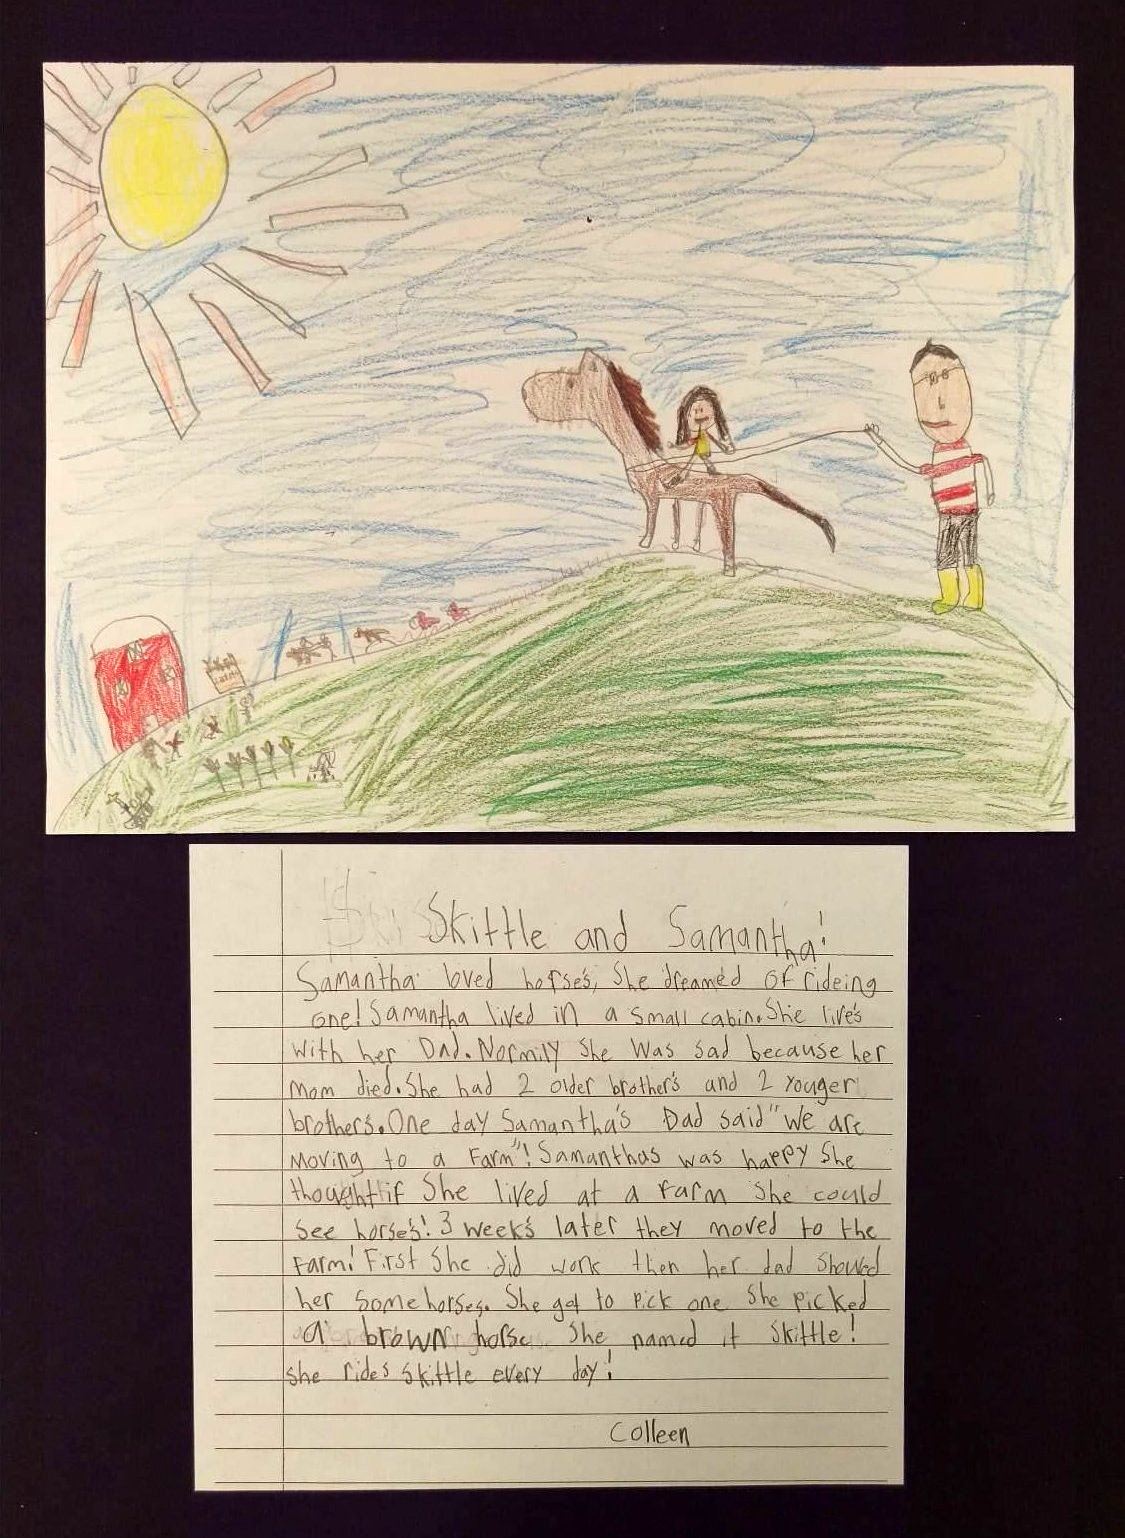 Skittle and Samantha!
Samantha loved horses, She dreamed of rideing
one! Samantha lived in a small cabin. She live's
with her Dad. Normily She Was sad because her
mom died. She had 2 older brother's and 2 youger
brother's. One day Samantha's Dad said "we are
moving to a Farm"! Samanthas was happy She
thought if She lived at a Farm She could
See horse's! 3 week's later they moved to the
Farm! First She did work then her dad Showed
her Some horses. She got to pick one She picked
a brown horse She named it Skittle!
She rides Skittle every day!
Colleen